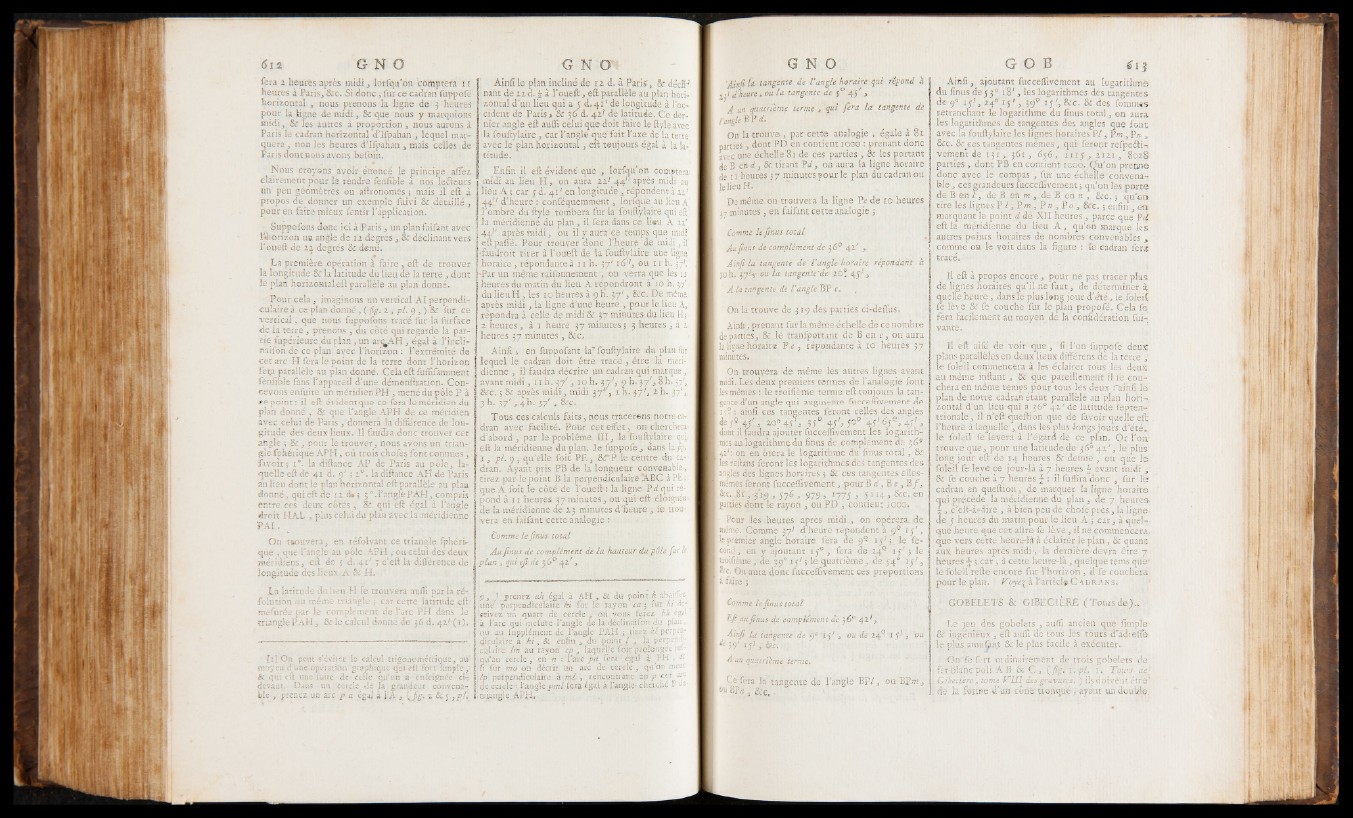 612 G N O G N O
sera 2 heures après midi, lorsqu'on comptera 11
heures à Paris, &c. Si donc, sur ce cadran supposé
horizontal, nous prenons la ligne de 3 heures
pour la ligne de midi, & que nous y marquions
midi, & les autres à proportion, nous aurons à
Paris le cadran horizontal d'Ispahan, lequel mar-
quera, non les heures d'Ispahan, mais celles de
Paris dont nous avons besoin.
Nous croyons avoir énoncé le principe assez
clairement pour le rendre sensible à nos lecteurs
un peu géomètres ou astronomes; mais il est à
propos de donner un exemple suivi & détaillé,
pour en faire mieux sentir l'application.
Supposons donc ici à Paris, un plan faisant avec
l'horizon un angle de 12 degrés, & déclinant vers
l'ouest de 22 degrés & demi.
La première opération à faire, est de trouver
la longitude & la latitude du lieu de la terre, dont
le plan horizontal est parallèle au plan donné.
Pour cela, imaginons un vertical AI perpendi-
culaire à ce plan donné, (fig. 2, pl. 9,) & sur ce
vertical, que nous supposons tracé sur la surface
de la terre, prenons, du côté qui regarde la par-
tie supérieure du plan, un arc AH, égal à l'incli-
naison de ce plan avec l'horizon: l'extrémité de
cet arc H sera le point de la terre dont l'horizon
sera parallèle au plan donné. Cela est suffisamment
sensible sans l'appareil d'une démonstration. Con-
cevons ensuite un méridien PH, mené du pôle P à
ce point: il est évident que ce sera le méridien du
plan donné, & que l'angle APH de ce méridien
avec celui de Paris, donnera la différence de lon-
gitude des deux lieux. Il faudra donc trouver cet
angle; &, pour le trouver, nous avons un trian-
gle sphérique APH, où trois choses sont connues,
savoir; 1°. la distance AP de Paris au pôle, la-
quelle est de 41 d. 9'; 2°. la distance AH de Paris
au lieu dont le plan horizontal est parallèle au plan
donné, qui est de 12 d.; 3°. l'angle PAH, compris
entre ces deux côtés, & qui est égal à l'angle
droit HAL, plus celui du plan avec la méridienne
PAI.
On trouvera, en résolvant ce triangle sphéri-
que, que l'angle au pôle APH, ou celui des deux
méridiens, est de 5 d. 41': c'est la différence de
longitude des lieux A & H.
La latitude du lieu H se trouvera aussi par la ré-
solution du même triangle; car cette latitude est
mesurée par le complément de l'arc PH dans le
triangle PAH, & le calcul donne de 36 d. 42' (1).
(1) On peut s'éviter le calcul trigonométrique, au
moyen d'une opération graphique qui est fort simple,
& qui est une suite de celle qu'on a enseignée ci-
devant. Dans un cercle de la grandeur convena-
ble, prenez un arc p a égal à PA, (fig. 2 & 3, pl.
Ainsi le plan incliné de 12 d. à Paris, & décli-
nant de 22 d. ½ à l'ouest, est parallèle au plan hori-
zontal d'un lieu qui a 5 d. 41' de longitude à l'oc-
cident de Paris, & 36 d. 42' de latitude. Ce der-
nier angle est aussi celui que doit faire le style avec
la soustylaire, car l'angle que fait l'axe de la terre
avec le plan horizontal, est toujours égal à la la-
titude.
Enfin il est évident que, lorsqu'on comptera
midi au lieu H, on aura 22' 44" après midi au
lieu A; car 5 d. 41' en longitude, répondent à 22'
44" d'heure: conséquemment, lorsque au lieu A
l'ombre du style tombera sur la soustylaire qui est
la méridienne du plan, il sera dans ce lieu A 22'
44" après midi, ou il y aura ce temps que midi
est passé. Pour trouver donc l'heure de midi, il
faudroit tirer à l'ouest de la soustylaire une ligne
horaire, répondante à 11 h. 37' 16", ou 11 h. 37'.
Par un même raisonnement, on verra que les 11
heures du matin du lieu A répondront à 10 h. 37'
du lieu H, les 10 heures à 9 h. 37', &c. De même
après midi, la ligne d'une heure, pour le lieu A,
répondra à celle de midi & 37 minutes du lieu H;
2 heures, à 1 heure 37 minutes; 3 heures, à 2
heures 37 minutes, &c.
Ainsi, en supposant la soustylaire du plan sur
lequel le cadran doit être tracé, être la méri-
dienne, il faudra décrire un cadran qui marque,
avant midi, 11 h. 37', 10 h. 37', 9 h. 37', 8 h. 37',
&c.; & après midi, midi 37', 1 h. 37', 2 h. 37',
3 h. 37', 4 h. 37', &c.
Tous ces calculs faits, nous tracerons notre ca-
dran avec facilité. Pour cet effet, on cherchera
d'abord, par le problème III, la soustylaire qui
est la méridienne du plan. Je suppose, dans la fig.
1, pl. 9, qu'elle soit PE, & P le centre du ca-
dran. Ayant pris PB de la longueur convenable,
tirez par le point B la perpendiculaire ABC à PE;
que A soit le côté de l'ouest: la ligne Pd qui ré-
pond à 11 heures 37 minutes, ou qui est éloignée
de la méridienne de 23 minutes d'heure, se trou-
vera en faisant cette analogie:
Comme le sinus total
Au sinus de complément de la hauteur du pôle sur le
plan, qui est de 36° 42',
9,) prenez ah égal à AH, & du point h abaissez
une perpendiculaire hi sur le rayon ca; sur hi dé-
crivez un quart de cercle, où vous ferez hk égal
à l'arc qui mesure l'angle de la déclinaison du plan,
ou au supplément de l'angle PAH; tirez kl perpen-
diculaire à hi, & enfin, du point l, la perpendi-
culaire lm au rayon cp, laquelle soit prolongée jus-
qu'au cercle, en n: l'arc pn sera égal à PH, &
si sur mn on décrit un arc de cercle, qu'on mène
lo perpendiculaire à ml, rencontrant en o cet arc
de cercle: l'angle oml sera égal à l'angle cherché P du
triangle APH.
G N O G O B 613
Ainsi la tangente de l'angle horaire qui répond à
23' d'heure, ou la tangente de 5° 45',
A un quatrième terme, qui sera la tangente de
l'angle BPd.
On la trouve, par cette analogie, égale à 81
parties, dont PD en contient 1000: prenant donc
avec une échelle 81 de ces parties, & les portant
de B en d, & tirant Pd, on aura la ligne horaire
de 11 heures 37 minutes pour le plan du cadran ou
le lieu H.
De même on trouvera la ligne Pe de 10 heures
37 minutes, en faisant cette analogie;
Comme le sinus total
Au sinus de complément de 36° 42',
Ainsi la tangente de l'angle horaire répondant à
10 h. 37', ou la tangente de 20° 45',
A la tangente de l'angle BPe.
On la trouve de 319 des parties ci-dessus.
Ainsi, prenant sur la même échelle de ce nombre
de parties, & le transportant de B en e, on aura
la ligne horaire Pe, répondante à 10 heures 37
minutes.
On trouvera de même les autres lignes avant
midi. Les deux premiers termes de l'analogie sont
les mêmes: le troisième terme est toujours la tan-
gente d'un angle qui augmente successivement de
15°: ainsi ces tangentes seront celles des angles
de 5° 45', 20° 45', 35° 45', 50° 45', 65° 45',
dont il faudra ajouter successivement les logarith-
mes au logarithme du sinus de complément de 36°
42'; on en ôtera le logarithme du sinus total, &
les restans seront les logarithmes des tangentes des
angles des lignes horaires; & ces tangentes elles-
mêmes seront successivement, pour Bd, Be, Bf,
&c. 81, 319, 576, 979, 1775, 5114, &c. en
parties dont le rayon, ou PD, contient 1000.
Pour les heures après midi, on opérera de
même. Comme 37' d'heure répondent à 9° 15',
le premier angle horaire sera de 9° 15'; le se-
cond, en y ajoutant 15°, sera de 24° 15'; le
troisième, de 39° 15'; le quatrième, de 54° 15',
&c. On aura donc successivement ces proportions
à faire;
Comme le sinus total
Est au sinus de complément de 36° 42',
Ainsi la tangente de 9° 15', ou de 24° 15', ou
de 39° 15', &c.
A un quatrième terme.
Ce sera la tangente de l'angle BPl, ou BPm,
ou BPn, &c.
Ainsi, ajoutant successivement au logarithme
du sinus de 53° 18', les logarithmes des tangentes
de 9° 15', 24° 15', 39° 15', &c. & des sommes
retranchant le logarithme du sinus total, on aura
les logarithmes de tangentes des angles que font
avec la soustylaire les lignes horaires Pl, Pm, Pn,
&c. & ces tangentes mêmes, qui seront respecti-
vement de 131, 361, 656, 1115, 2121, 8028
parties, dont PB en contient 1000. Qu'on prenne
donc avec le compas, sur une échelle convena-
ble, ces grandeurs successivement; qu'on les porte
de B en l, de B en m, de B en n, &c.; qu'on
tire les lignes Pl, Pm, Pn, Po, &c.; enfin, en
marquant le point d de XII heures, parce que Pd
est la méridienne du lieu A, qu'on marque les
autres points horaires de nombres convenables,
comme on le voit dans la figure: le cadran sera
tracé.
Il est à propos encore, pour ne pas tracer plus
de lignes horaires qu'il ne faut, de déterminer à
quelle heure, dans le plus long jour d'été, le soleil
se lève & se couche sur le plan proposé. Cela se
fera facilement au moyen de la considération sui-
vante.
Il est aisé de voir que, si l'on suppose deux
plans parallèles en deux lieux différens de la terre,
le soleil commencera à les éclairer tous les deux
au même instant, & que pareillement il se cou-
chera en même temps pour tous les deux: ainsi le
plan de notre cadran étant parallèle au plan hori-
zontal d'un lieu qui a 36° 42' de latitude septen-
trionale, il n'est question que de savoir quelle est
l'heure à laquelle, dans les plus longs jours d'été,
le soleil se levera à l'égard de ce plan. Or l'on
trouve que, pour une latitude de 36° 42', le plus
long jour est de 14 heures & demie, ou que le
soleil se leve ce jour-là à 7 heures ¼ avant midi,
& se couche à 7 heures ¼: il suffira donc, sur le
cadran en question, de marquer la ligne horaire
qui précède la méridienne du plan, de 7 heures
¼, c'est-à-dire, à bien peu de chose près, la ligne
de 5 heures du matin pour le lieu A; car, à quel-
que heure que cet astre se lève, il ne commencera
que vers cette heure-là à éclairer le plan, & quant
aux heures après midi, la dernière devra être 7
heures ½; car, à cette heure-là, quelque tems que
le soleil reste encore sur l'horizon, il se couchera
pour le plan. Voyez à l'article CADRANS.
GOBELETS & GIBECIÈRE (Tours de).
Le jeu des gobelets, aussi ancien que simple
& ingénieux, est aussi de tous les tours d'adresse
le plus amusant & le plus facile à exécuter.
On se sert ordinairement de trois gobelets de
fer-blanc poli A B & C, (fig. 1. pl. 1. Tours de
Gibecière, tome VIII des gravures.) ils doivent être
de la forme d'un cône tronqué, ayant un double